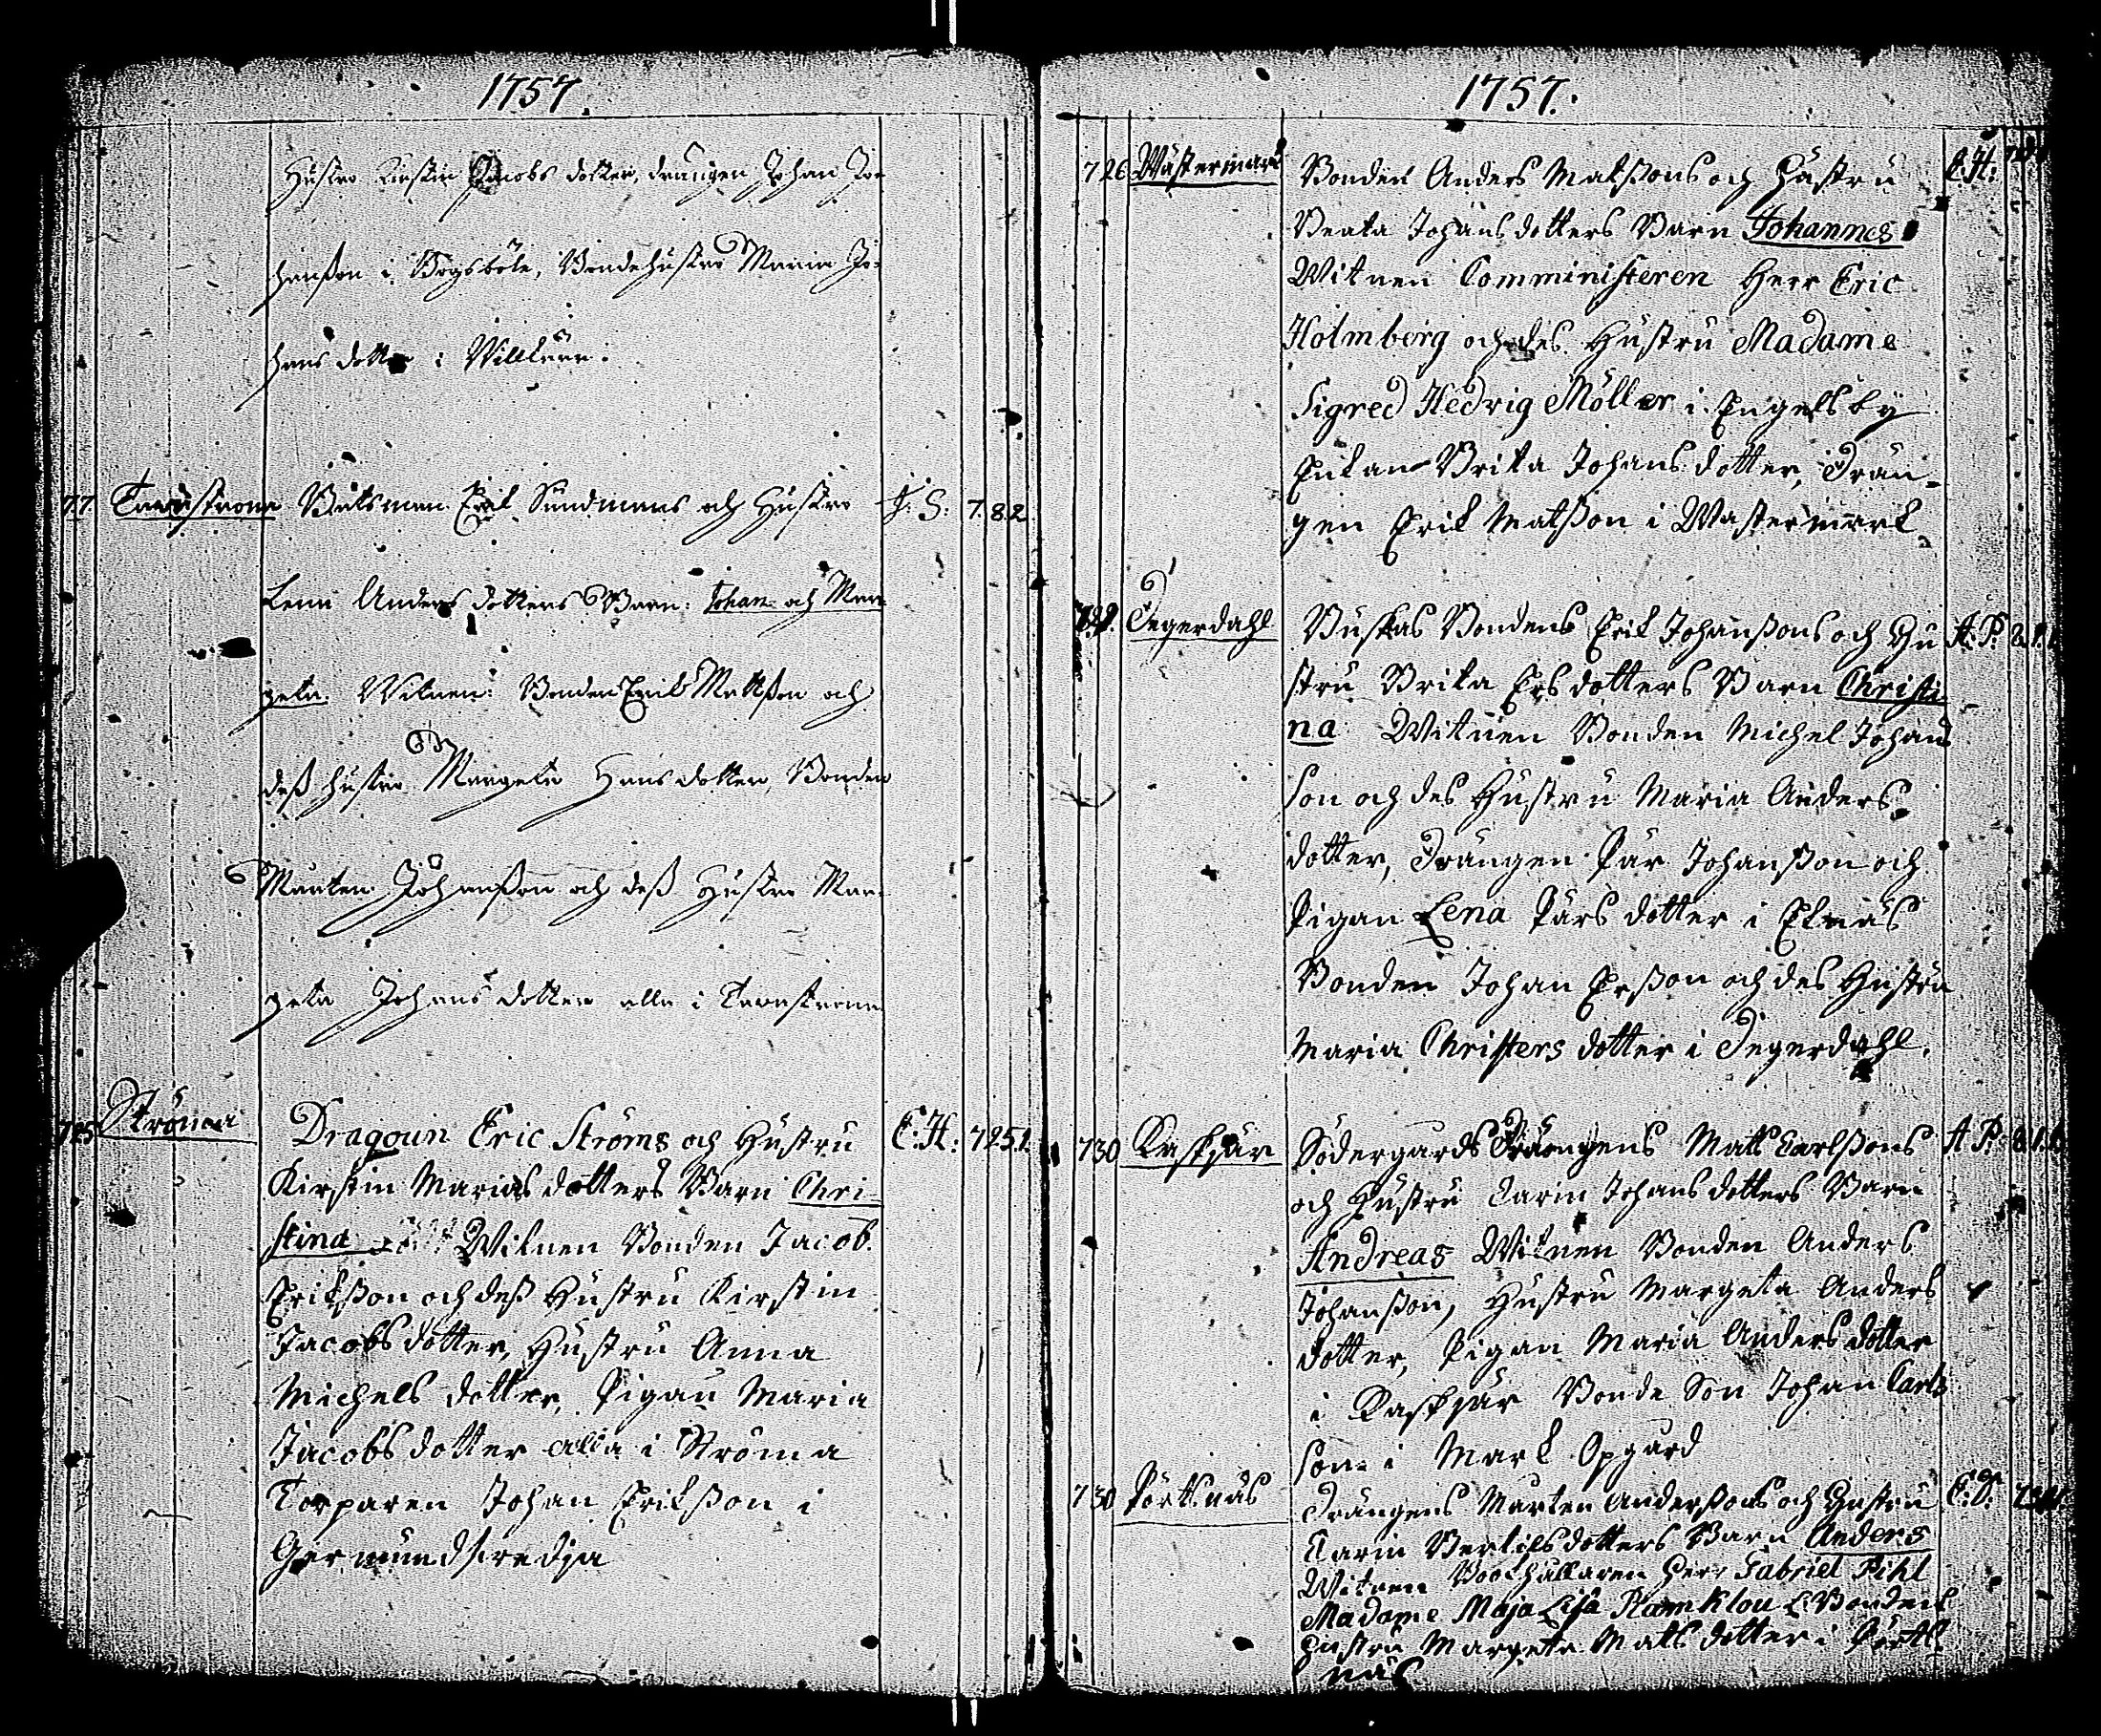 1757.
Hustro Kirstin Jacobs dotter, drängen Johan Jo-
hanßon i Bogsböle, Bondehustro Maria Jo-
hans dotter i
77. Tavastrona Båtsman Erik Sundmans och Hustro J. S. 7. 8 2
Lena Anders dotters Barn: Johan och Mar-
geta. Witnen: Bonden Erik Mattßon och
deß hustro Margeta Hans dotter, Bonden
Mårten Johanßon och deß Hustro Mar-
geta Johans dotter alla i Tavastrona
725 Ströma Dragoun Eric Ströms och Hustru E. H: 7 25 1.
Kirstin Marias dotters Barn Chri-
stina Witnen Bonden Jacob
Erikßon och deß Hustru Kirstin
Jacobs dotter, Hustru Anna
Michels dotter, Pigan Maria
Jacobs dotter alla i Ströma
Torparen Johan Erikßon i
Germundsvedja
1757.
726 Wästermark Bonden Anders Matßons och Hustru E. H:
Beata Johans dotters Barn Johannes
Witnen Comministeren Herr Eric
Holmberg och des Hustru Madame
Sigred Hedvig Möller i Engelsby
Enkan Brita Johans dotter, Drän-
gen Erik Matßon i Wastermark
Tegerdahl Buskas Bondens Erik Johanßons och Hu A. P. 8. 1. 1
stru Brita Ers dotters Barn Christi-
na Witnen Bonden Michel Johan
son och des Hustru Maria Anders
dotter, Drängen Pär Johanßon och
Pigan Lena Pärs dotter i Elnäs
Bonden Johan Erßon och des Hustru
Maria Christers dotter i Tegerdahl.
730 Kaskjär Södergårds Drängens Mats Carlßons A P. 8. 1.
och Hustru Carin Johans dotters Barn
Andreas Witnen Bonden Anders
Johanßon, Hustru Margeta Anders
dotter, Pigan Maria Anders dotter
i Kaskjär Bonde Son Johan Carls
son i Mark Opgård
730 Pörtsnäs Drängens Mårten Anderßons och Hustru
Carin Bertilsdotters Barn Anders
Witnen Bookhållaren Herr Gabriel Pihl
Madame Maja Lisa Ramklou Bondens
Hustru Margeta Mats dotter i Pörts-
näs